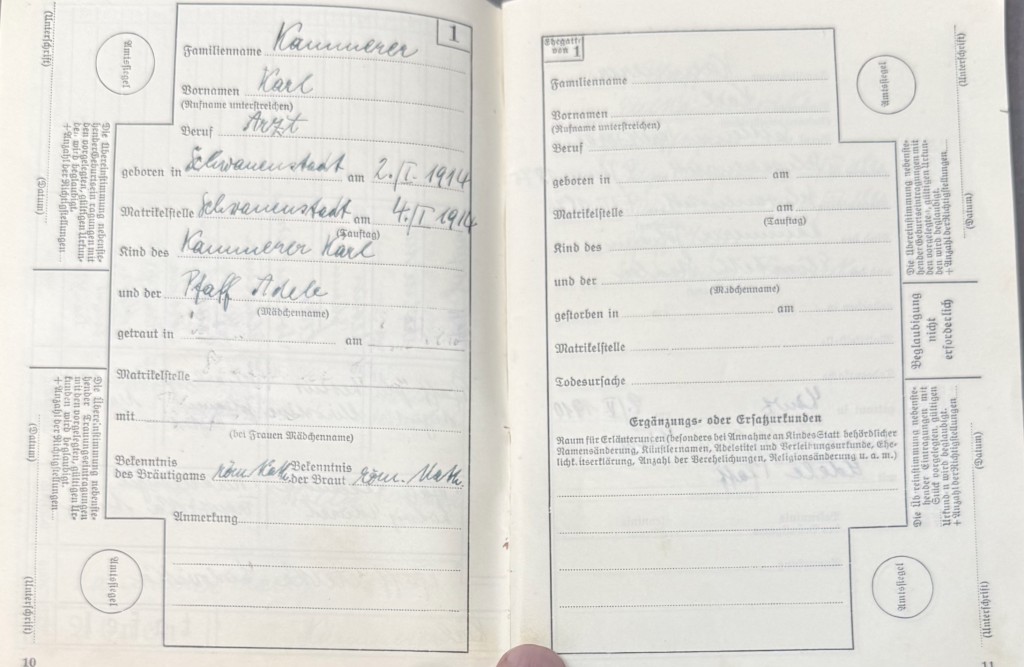 1
Familienname Kammerer
Vornamen Karl
(Rufname unterstreichen)
Beruf Arzt
geboren in Schwanenstadt am 2./I. 1914
Matrikelstelle Schwanenstadt am 4./I 1914
(Tauftag)
Kind des Kammerer Karl
und der Pfaff Adele
(Mädchenname)
getraut in am
Matrikelstelle
mit
(bei Frauen Mädchenname)
Bekenntnis des Bräutigams röm. Kath. Bekenntnis der Braut röm. Kath.
Anmerkung
(Unterschrift)
Amtssiegel
(Datum)
Die Übereinstimmung nebenste-
hender Geburtseintragungen mit
den vorgelegten, gültigen Urkun-
den wird beglaubigt.
+ Anzahl der Richtigstellungen
(Datum)
Die Übereinstimmung nebenste-
hender Trauungseintragungen
mit den vorgelegten, gültigen Ur-
kunden wird beglaubigt.
+ Anzahl der Richtigstellungen
Amtssiegel
(Unterschrift)
10
Ehegatte
von 1
Familienname
Vornamen
(Rufname unterstreichen)
Beruf
geboren in am
Matrikelstelle am
(Tauftag)
Kind des
und der
(Mädchenname)
gestorben in am
Matrikelstelle
Todesursache
Ergänzungs- oder Ersatzurkunden
Raum für Erläuterungen (besonders bei Annahme an Kindes Statt behördlicher
Namensänderung, Künstlernamen, Adelstitel und Verleihungsurkunde, Ehe-
licht. itserklärung, Anzahl der Verehelichungen, Religionsänderung u. a. m.)
Amtssiegel
(Unterschrift)
Die Übereinstimmung nebenste-
hender Geburtseintragungen mit
den vorgelegte, gültigen Urkun-
den wird beglaubigt.
+ Anzahl der Richtigstellungen
(Datum)
Beglaubigung
nicht
erforderlich
Die Üb reinstimmung nebenste-
hender Eintragungen mit
Stüht vorgelegten, gültigen
Urkund n wird beglaubigt.
+ Anzahl der Richtigstellungen
(Datum)
Amtssiegel
(Unterschrift)
11